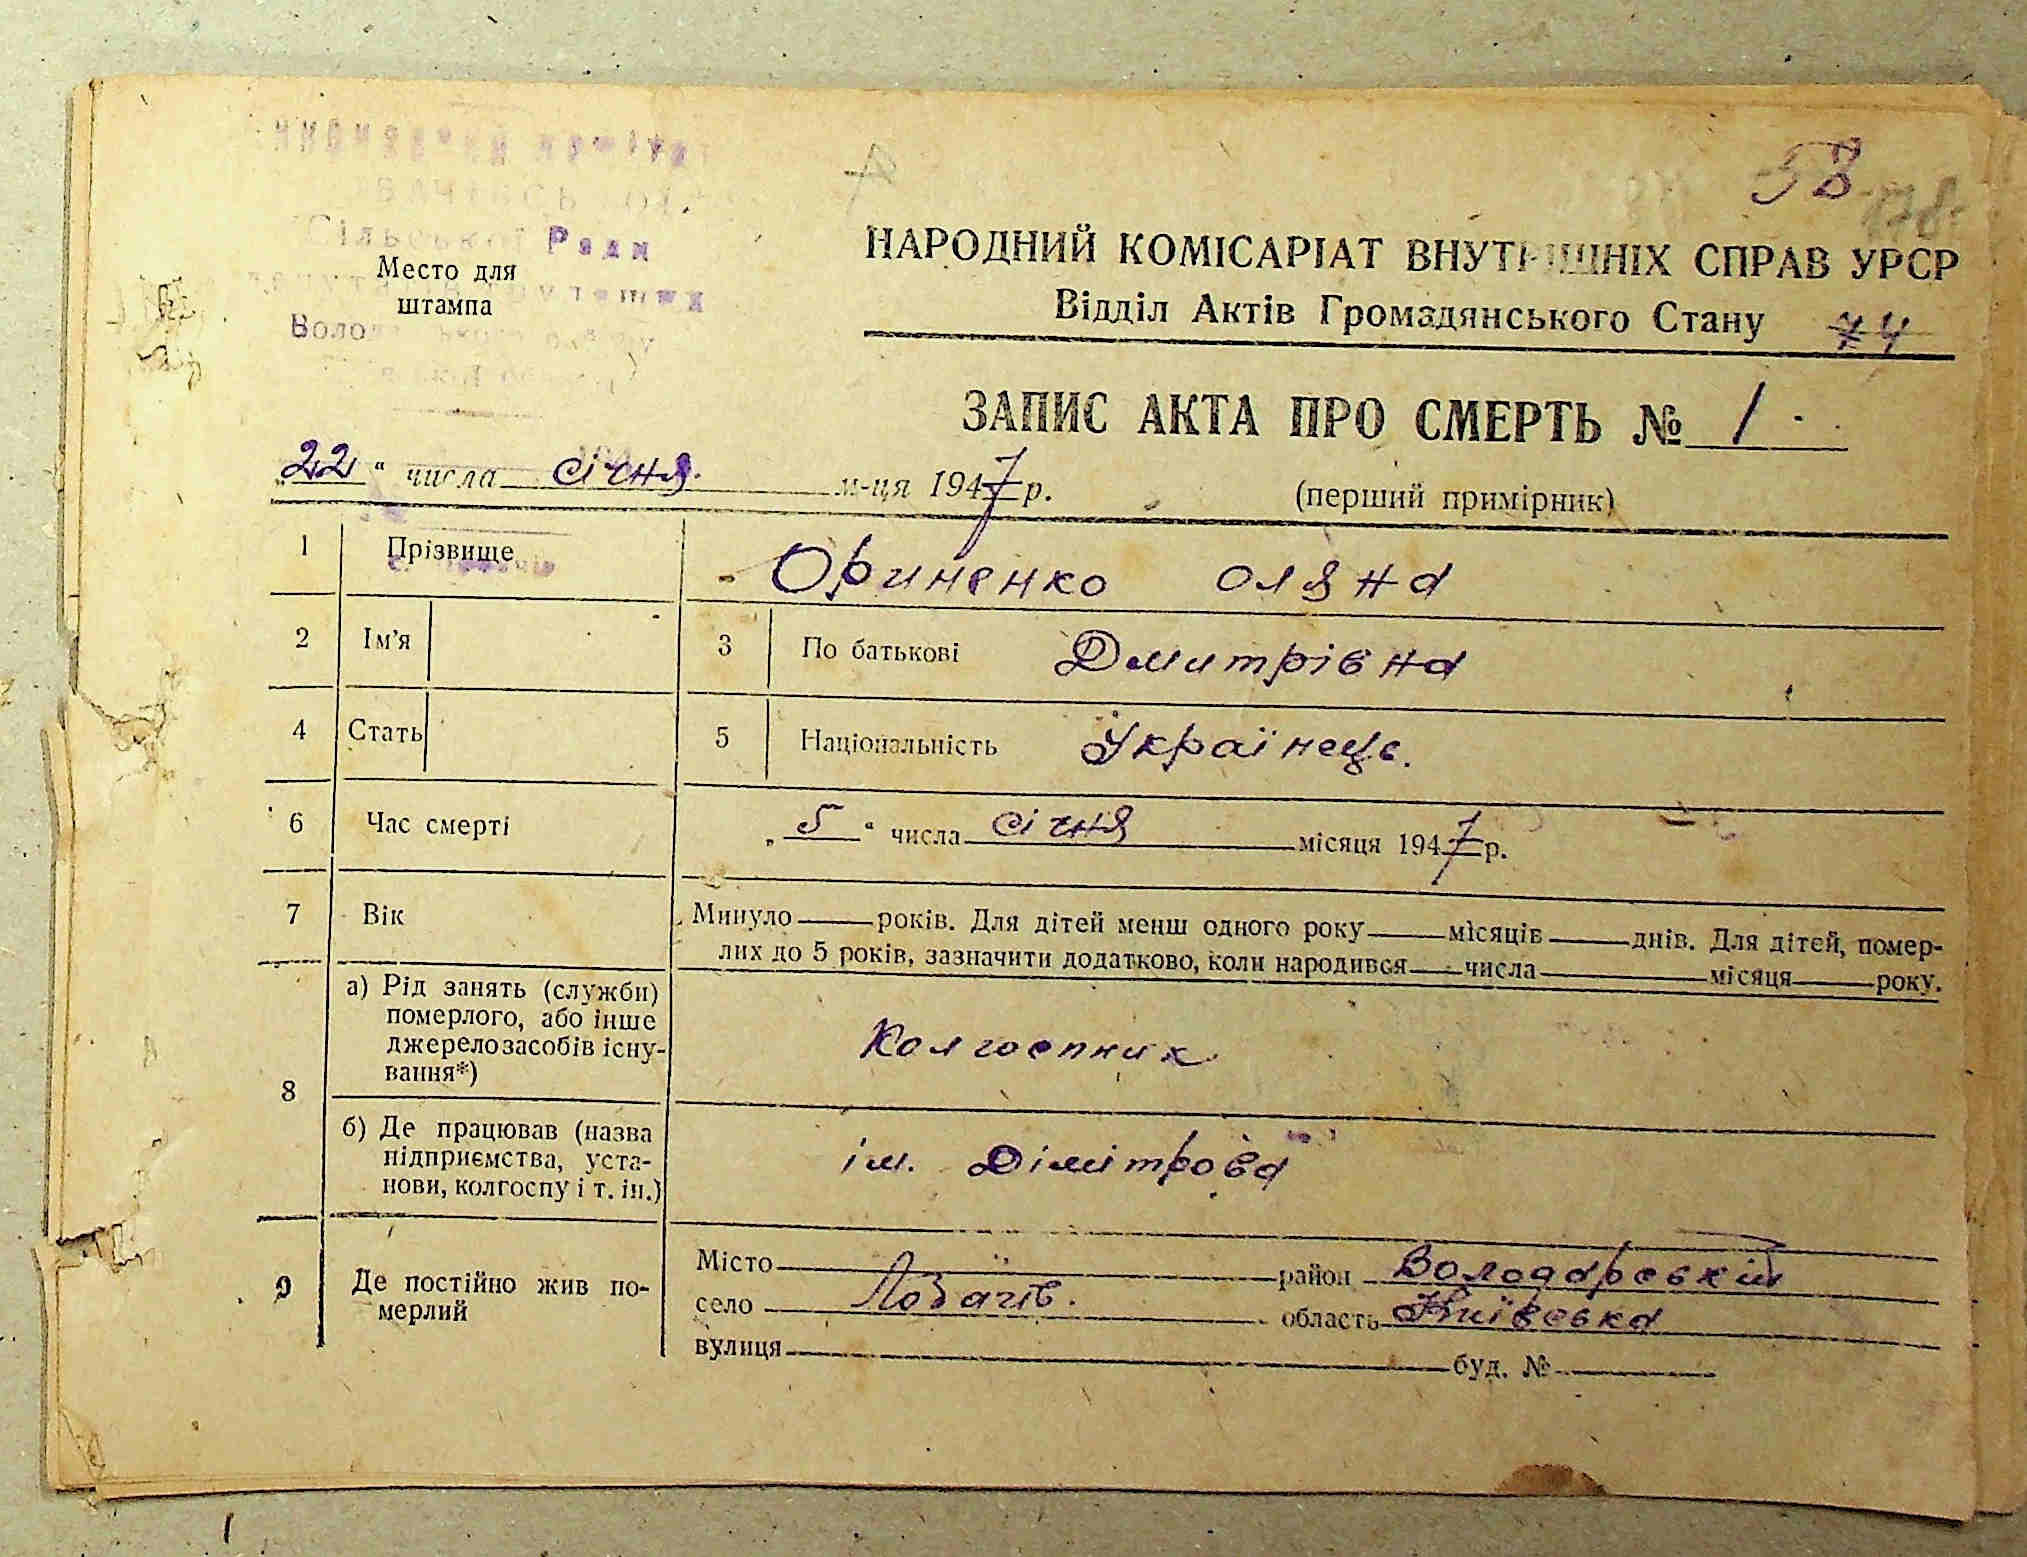 58
Сільської Ради
Место для
штампа
НАРОДНИЙ КОМІСАРІАТ ВНУТРІШНІХ СПРАВ УРСР
Відділ Актів Громадянського Стану 74
ЗАПИС АКТА ПРО СМЕРТЬ № 1.
„22“ числа січня. м-ця 1947 р. (перший примірник)
1 Прізвище Ориненко Оляна
2 Ім'я 3 По батькові Дмитрівна
4 Стать 5 Національність Українець.
6 Час смерті „5“ числа січня місяця 1947 р.
7 Вік Минуло років. Для дітей менш одного року місяців днів. Для дітей, помер-
лих до 5 років, зазначити додатково, коли народився числа місяця року.
8 а) Рід занять (служби)
померлого, або інше
джерело засобів існу-
вання*)
Колгоспник
б) Де працював (назва
підприємства, уста-
нови, колгоспу і т. ін.)
ім. Дімітрова
9 Де постійно жив по-
мерлий
Місто район Володарський
село Лобачів. область Київська
вулиця буд. №